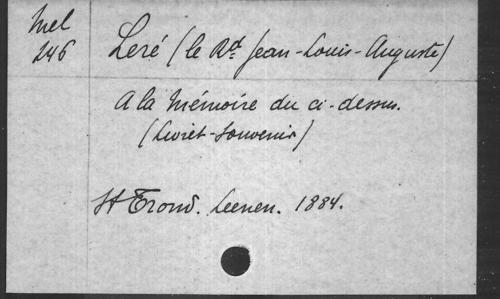 Mel
246
Leré (le Rd. Jean-Louis-Auguste)
A la Mémoire du ci-dessus.
(Livret-Souvenir)
St Trond. Leenen. 1884.